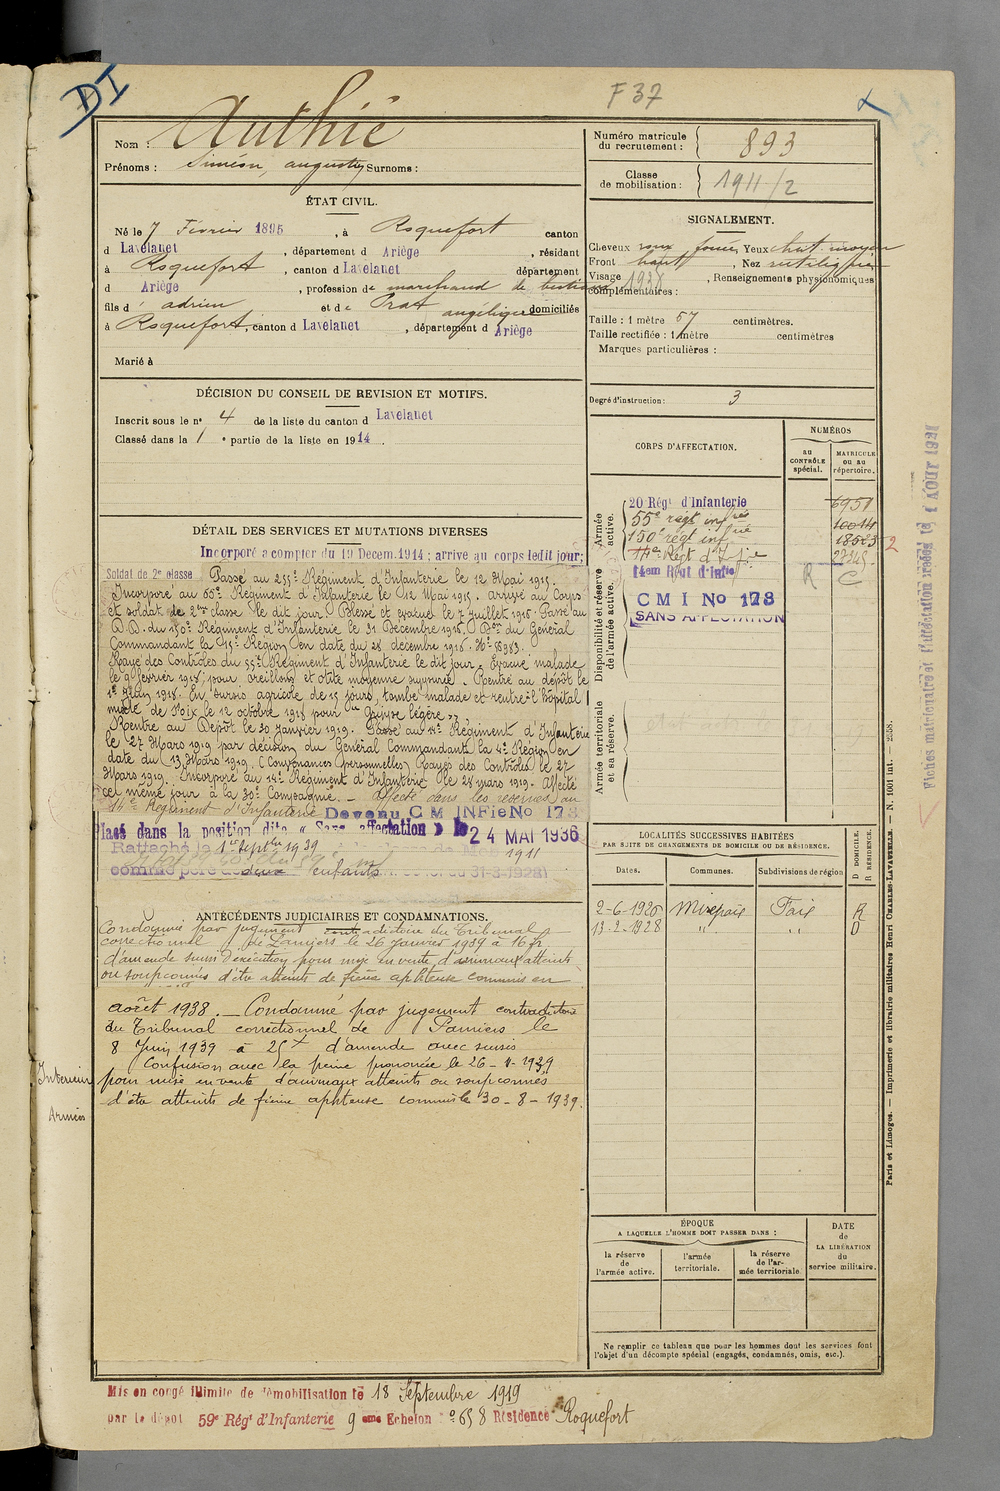 DI
F 37
Nom : Authié
Prénoms : Siméon, auguste Surnoms :
Numéro matricule du recrutement : 893
Classe de mobilisation : 1911/2
ÉTAT CIVIL.
Né le 7 Février 1895, à Roquefort canton
d Lavelanet, département d Ariège, résidant
à Roquefort, canton d Lavelanet département
d Ariège, profession de marchand de bestiaux
fils d' adrien et de Prat angélique domiciliés
à Roquefort, canton d Lavelanet, département d Ariège
Marié à
SIGNALEMENT.
Cheveux roux foncé Yeux chat. moyen
Front haut, Nez rectiligne
Visage, Renseignements physionomiques
complémentaires :
Taille : 1 mètre 57 centimètres.
Taille rectifiée : 1 mètre centimètres
Marques particulières :
Degré d'instruction : 3
DÉCISION DU CONSEIL DE REVISION ET MOTIFS.
Inscrit sous le n° 4 de la liste du canton d Lavelanet
Classé dans la 1° partie de la liste en 1914.
CORPS D'AFFECTATION.
NUMÉROS
au CONTRÔLE spécial.
MATRICULE ou au répertoire.
Armée active.
20 Régt d'Infanterie 6951
55e régt infrie 10014
150e régt infrie
14e Régt d'Infie
14em Régt d'Infie
R C
Disponibilité et réserve de l'armée active.
C M I No 178
SANS AFFECTATION
Armée territoriale et sa réserve.
DÉTAIL DES SERVICES ET MUTATIONS DIVERSES
Incorporé à compter du 19 Decem. 1914 ; arrivé au corps ledit jour;
Soldat de 2e classe Passé au 255e Régiment d'Infanterie le 12 Mai 1915.
Incorporé au 55e Régiment d'Infanterie le 12 Mai 1915. arrivé au Corps
et soldat de 2ème classe le dit jour. Blessé et évacué le 7 Juillet 1916. Passé au
D.D. du 150e Régiment d'Infanterie le 31 Décembre 1916. Don du Général
Commandant la 15e Région en date du 28 décembre 1916. No 58983.
Rayé des Contrôles du 55e Régiment d'Infanterie le dit jour. Évacué malade
le 9 février 1918, pour oreillons et otite moyenne suppurée. Rentré au dépôt le
1er Juin 1918. En sursis agricole de 15 jours, tombé malade et rentre à l'hôpital
mixte de Foix le 12 octobre 1918 pour "Grippe légère".
Rentré au Dépôt le 20 Janvier 1919. Passé au 14e Régiment d'Infanterie
le 27 Mars 1919 par décision du Général Commandant la 4e Région en
date du 13 Mars 1919. (Convenances personnelles) Rayé des Contrôles le 27
Mars 1919. Incorporé au 14e Régiment d'Infanterie le 28 mars 1919. Affecté
cet même jour à la 30e Compagnie. — Affecté dans les réserves au
14e Régiment d'Infanterie Devenu C M INFie No 178
Placé dans la position dite « Sans affectation » le 24 MAI 1936
Rattaché le 1er septbre 1939 1911
comme père de deux enfants
ANTÉCÉDENTS JUDICIAIRES ET CONDAMNATIONS.
Condamné par jugement contradictoire du Tribunal
correctionnel de Pamiers le 26 Janvier 1939 à 16 fr
d'amende sursis d'exécution pour mise en vente d'animaux atteints
ou soupçonnés d'être atteints de fièvre aphteuse commis en
août 1938. — Condamné par jugement contradictoire
du Tribunal correctionnel de Pamiers le
8 Juin 1939 à 25f d'amende avec sursis
Confusion avec la peine prononcée le 26-1-1939
pour mise en vente d'animaux atteints ou soupçonnés
d'être atteints de fièvre aphteuse commis le 30-8-1939.
LOCALITÉS SUCCESSIVES HABITÉES
PAR SUITE DE CHANGEMENTS DE DOMICILE OU DE RÉSIDENCE.
Dates. Communes. Subdivisions de région
D DOMICILE. R RÉSIDENCE.
2-6-1926 Mirepoix Foix R
13-2-1928 " " D
ÉPOQUE
A LAQUELLE L'HOMME DOIT PASSER DANS :
la réserve de l'armée active.
l'armée territoriale.
la réserve de l'armée territoriale.
DATE de LA LIBÉRATION du service militaire.
Ne remplir ce tableau que pour les hommes dont les services font
l'objet d'un décompte spécial (engagés, condamnés, omis, etc.).
Mis en congé illimité de démobilisation le 18 Septembre 1919
par le dépôt 59e Régt d'Infanterie 9 eme Echelon no 658 Résidence Roquefort
Paris et Limoges. — Imprimerie et librairie militaires Henri CHARLES-LAVAUZELLE. — N. 1001 int. - 2558.